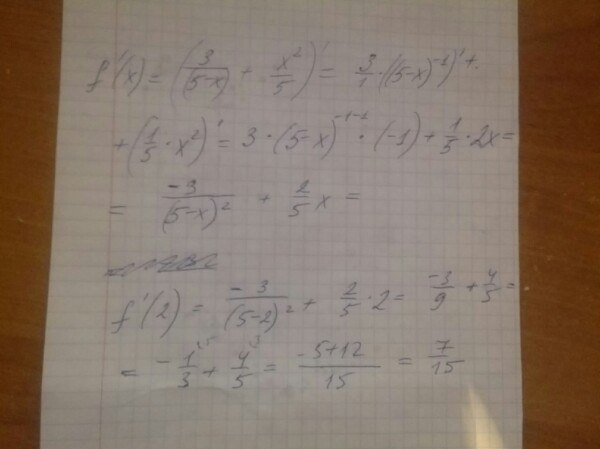 f'(x) = (3/(5-x) + x²/5)' = 3/1 · ((5-x)⁻¹)' +
+ (1/5 · x²)' = 3 · (5-x)⁻¹⁻¹ · (-1) + 1/5 · 2x =
= -3/(5-x)² + 2/5 x =
f'(2) = -3/(5-2)² + 2/5 · 2 = -3/9 + 4/5 =
= -1/3 ⁵ + 4/5 ³ = (-5+12)/15 = 7/15